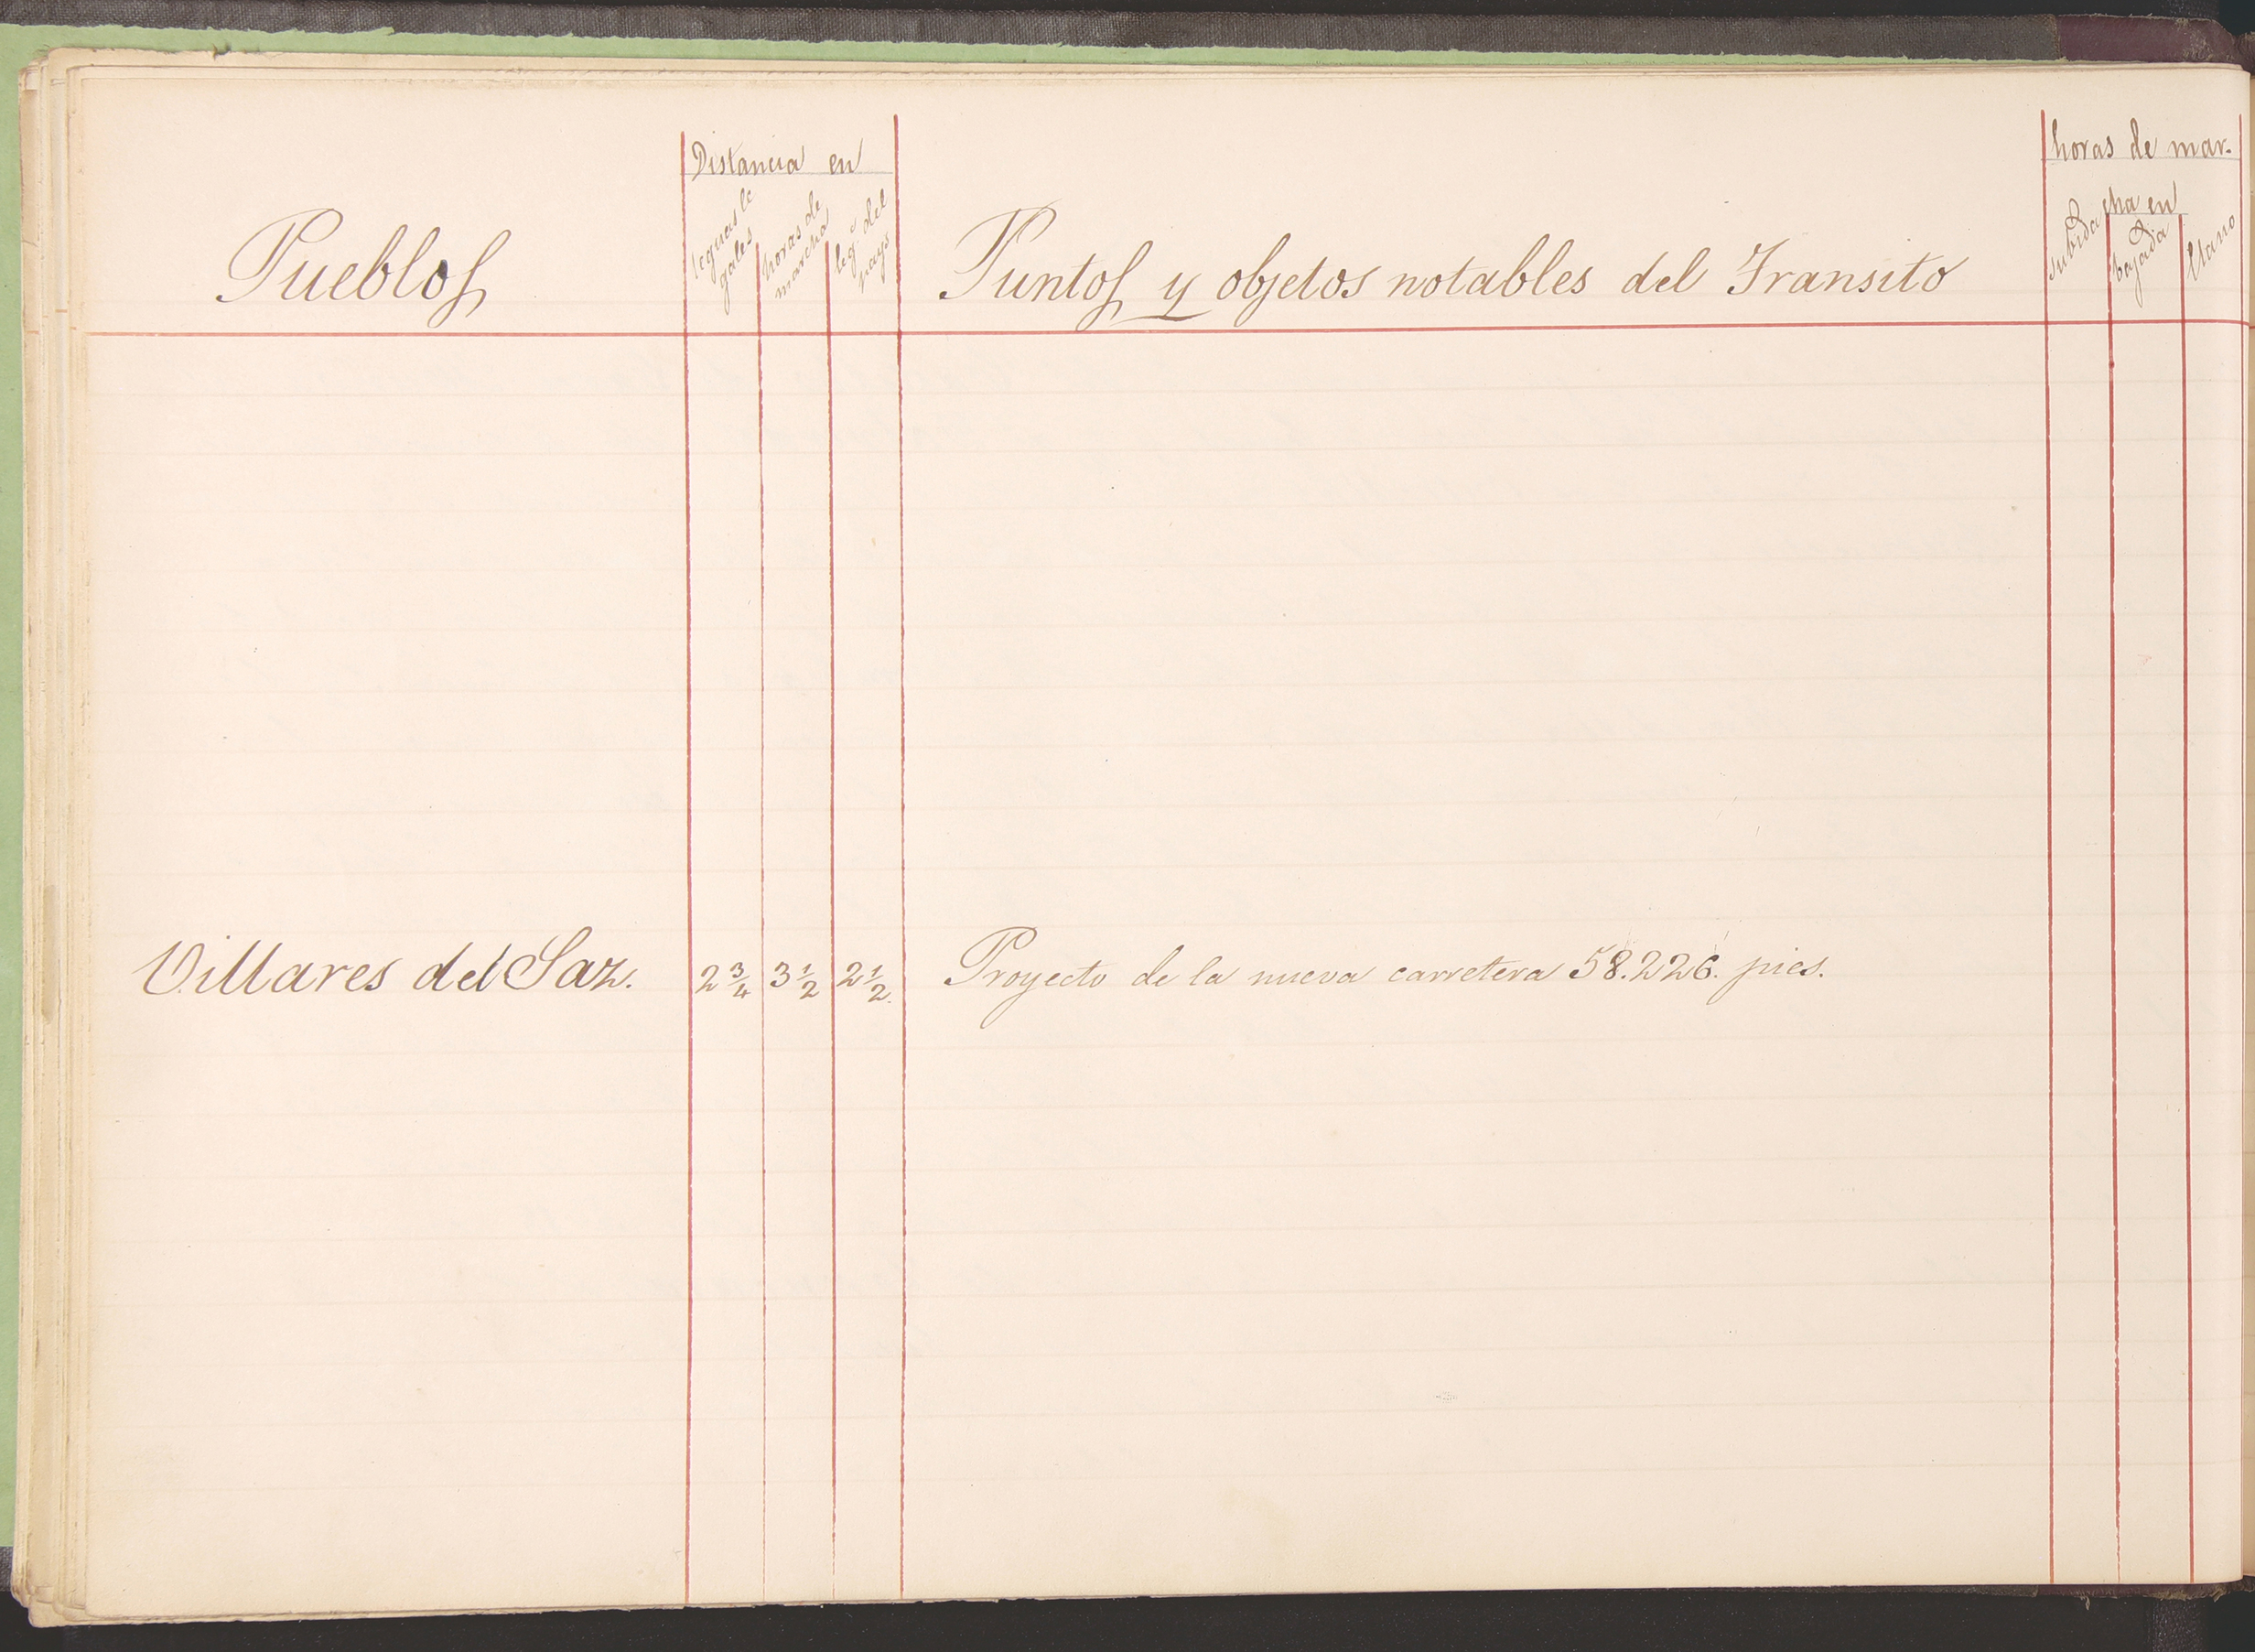 Pueblos
Distancia en
leguas le
gales
horas de
marcha
leg.s del
pays
Puntos y objetos notables del Transito
horas de mar-
cha en
subida
bajada
llano
Villares del Saz. 2 3/4 3 1/2 2 1/2. Proyecto de la nueva carretera 58.226. pies.